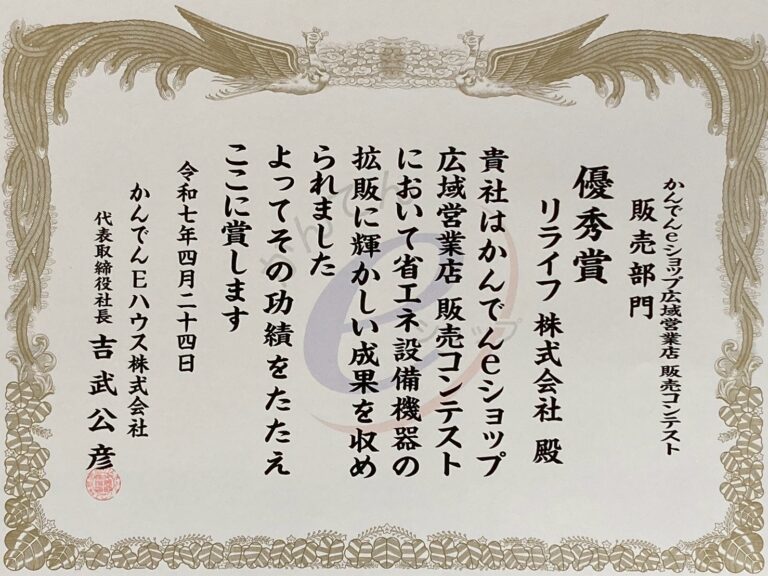 かんでんeショップ広域営業店 販売コンテスト
販売部門
優秀賞
リライフ 株式会社 殿
貴社はかんでんeショップ
広域営業店 販売コンテスト
において省エネ設備機器の
拡販に輝かしい成果を収め
られました
よってその功績をたたえ
ここに賞します
令和七年四月二十四日
かんでんEハウス株式会社
代表取締役社長 吉武公彦
かんでん
e
ショップ